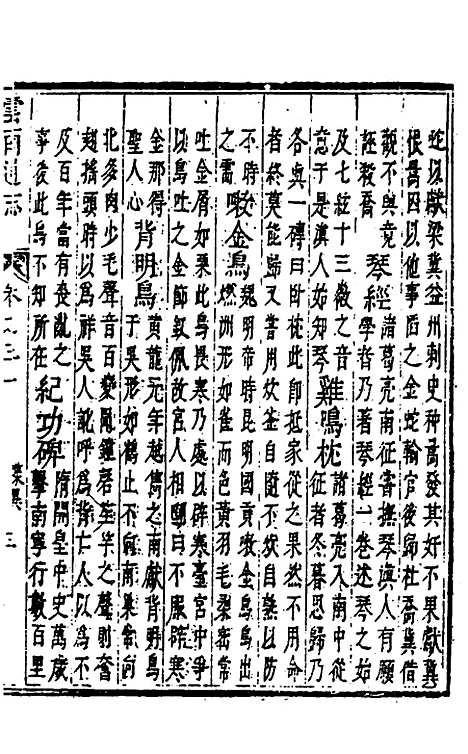 蛇以獻梁冀益州刺史种暠發其奸不果獻冀
恨暠因以他事陷之金蛇輸官後歸杜喬冀借
觀不與竟誣殺喬 琴經 諸葛亮南征嘗撫琴滇人有願學者乃著琴經一卷述琴之始
及七絃十三徽之音意于是滇人始知琴 雞鳴枕 諸葛亮入南中從征者冬暮思歸乃
各與一磚曰臥枕此即抵家從之果然不用命
者終莫能歸又嘗用炊釜自隨不炊自熟以防
不時之需 嗽金鳥 魏明帝時昆明國貢嗽金鳥出燃洲形如雀而色黃羽毛柔密常
吐金屑如粟此鳥畏寒乃處以辟寒臺宮中爭
以鳥吐之金飾釵佩故宮人相嘲曰不服辟寒
金那得聖人心 背明鳥 黃龍元年越雋之南獻背明鳥于吳形如鶴止不向南巢常向
北多肉少毛聲音百變聞鐘磬笙竽之聲則奮
翅搖頭時以為祥吳人訛呼為背亡人以為不
及百年當有喪亂之事後此鳥不知所在 紀功碑 隋開皇中史萬歲擊南寧行數百里
雲南通志 卷之三十 災異 三